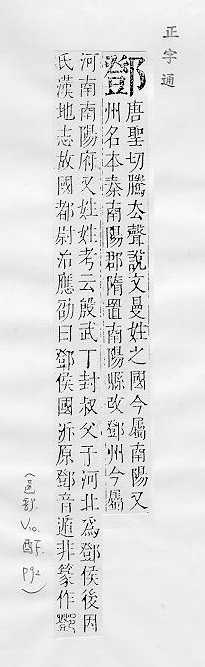 正字通
鄧
唐亙切騰去聲說文曼姓之國今屬南陽又
州名本秦南陽郡隋置南陽縣改鄧州今屬
河南南陽府又姓姓考云殷武丁封叔父于河北爲鄧侯後因
氏漢地志故國都尉治應劭曰鄧侯國泝原鄧音遁非篆作
(邑部 V10. 酉下. P92)